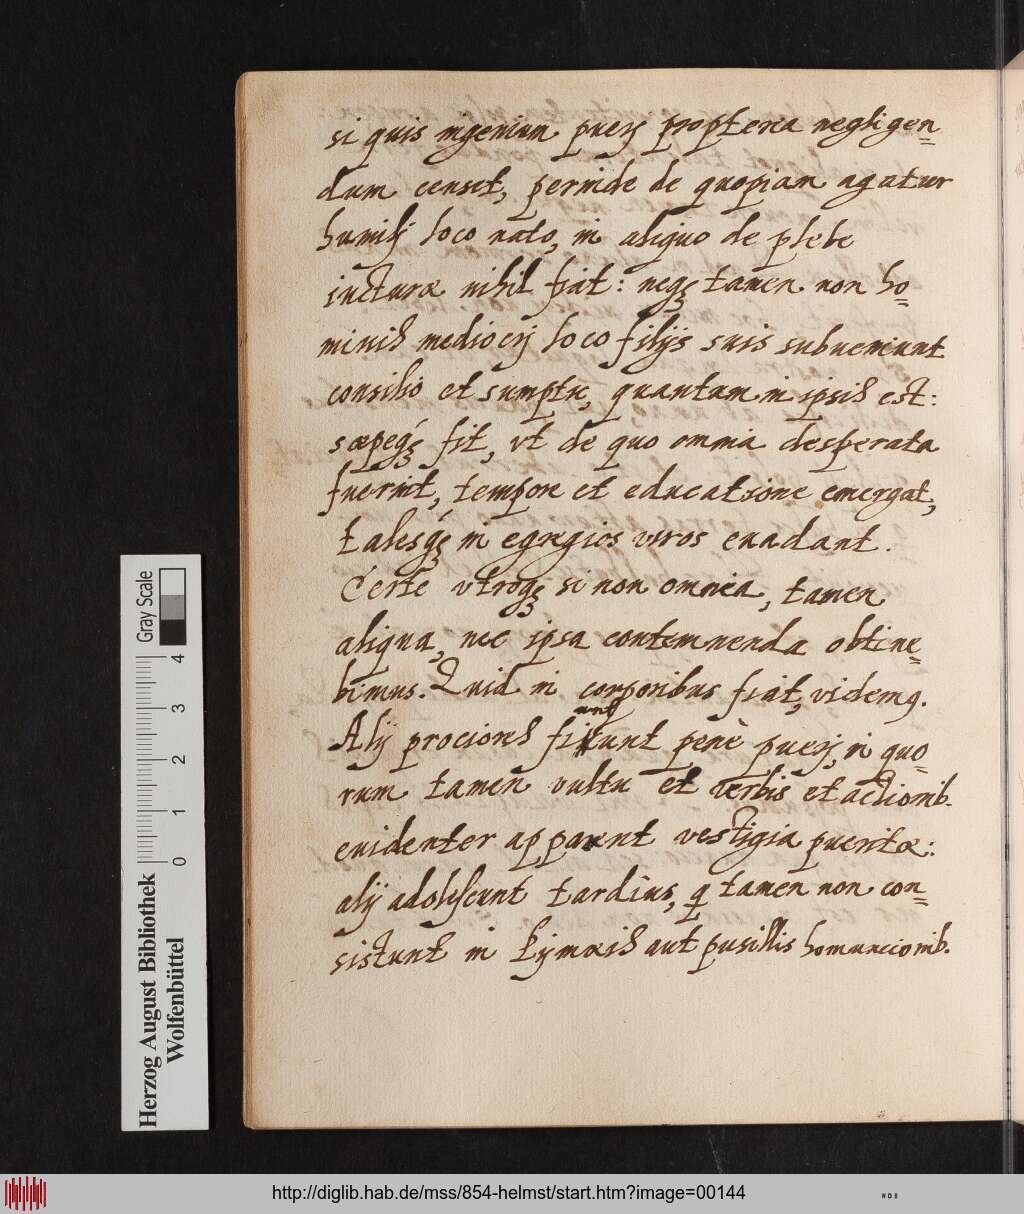 si quis ingenium puerj propterea negligen=
dum censet, perinde de quopiam agatur
humilj loco nato, in aliquo de plebe
iacturæ nihil fiat: neqꝫ tamen non ho=
minis mediocrj loco filijs suis subueniunt
consilio et sumptu, quantum in ipsis est:
sæpeqꝫ fit, vt de quo omnia desperata
fuerint, tempore et educatione emergat,
talesqꝫ in egregios viros euadant.
Certè vtroqꝫ si non omnia, tamen
aliqua, nec ipsa contemnenda obtine=
bimus. Quid in corporibus fiat, videmꝯ.
Alij prociores fiunt penè puerj, in quo=
rum tamen vultu et verbis et actionib.
euidenter apparent vestigia pueritæ:
alij adolescunt tardius, q tamen non con=
sistunt in aut pusillis homuncionib.
Gray Scale
0 1 2 3 4
Herzog August Bibliothek
Wolfenbüttel
http://diglib.hab.de/mss/854-helmst/start.htm?image=00144